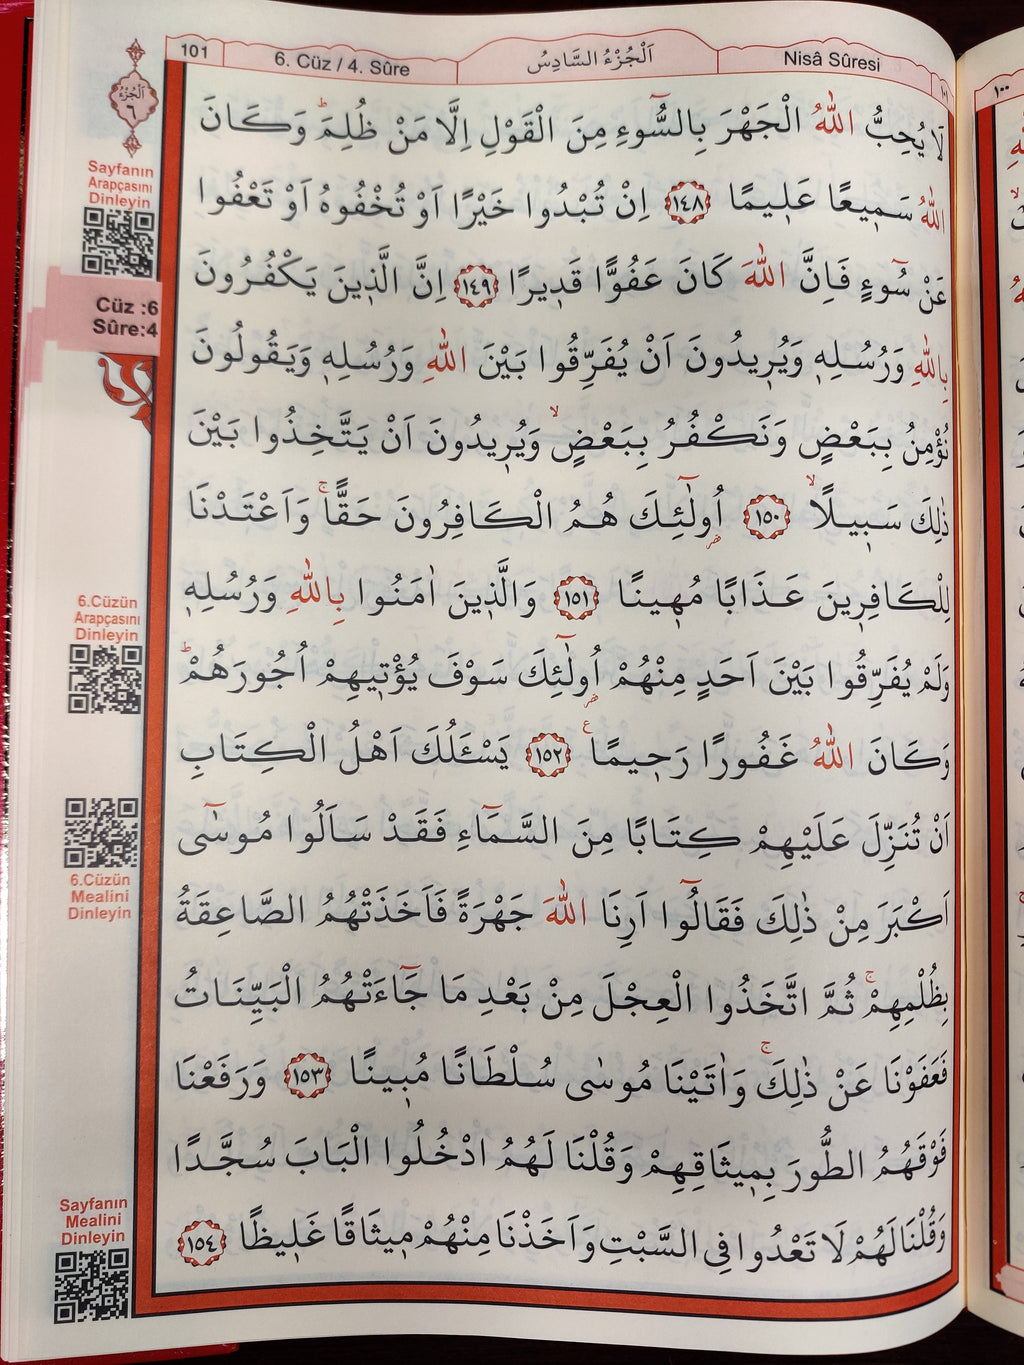 101
6. Cüz / 4. Sûre
اَلْجُزْءُ السَّادِسُ
Nisâ Sûresi
١٠١
١٠٠
اَلْجُزْءُ
٦
Sayfanın
Arapçasını
Dinleyin
Cüz :6
Sûre:4
لَا يُحِبُّ اللّٰهُ الْجَهْرَ بِالسُّٓوءِ مِنَ الْقَوْلِ اِلَّا مَنْ ظُلِمَۜ وَكَانَ
اللّٰهُ سَم۪يعًا عَل۪يمًا ﴿١٤٨﴾ اِنْ تُبْدُوا خَيْرًا اَوْ تُخْفُوهُ اَوْ تَعْفُوا
عَنْ سُٓوءٍ فَاِنَّ اللّٰهَ كَانَ عَفُوًّا قَد۪يرًا ﴿١٤٩﴾ اِنَّ الَّذ۪ينَ يَكْفُرُونَ
بِاللّٰهِ وَرُسُلِه۪ وَيُر۪يدُونَ اَنْ يُفَرِّقُوا بَيْنَ اللّٰهِ وَرُسُلِه۪ وَيَقُولُونَ
نُؤْمِنُ بِبَعْضٍ وَنَكْفُرُ بِبَعْضٍۙ وَيُر۪يدُونَ اَنْ يَتَّخِذُوا بَيْنَ
ذٰلِكَ سَب۪يلًاۙ ﴿١٥٠﴾ اُو۬لٰٓئِكَ هُمُ الْكَافِرُونَ حَقًّاۚ وَاَعْتَدْنَا
لِلْكَافِر۪ينَ عَذَابًا مُه۪ينًا ﴿١٥١﴾ وَالَّذ۪ينَ اٰمَنُوا بِاللّٰهِ وَرُسُلِه۪
وَلَمْ يُفَرِّقُوا بَيْنَ اَحَدٍ مِنْهُمْ اُو۬لٰٓئِكَ سَوْفَ يُؤْت۪يهِمْ اُجُورَهُمْۜ
وَكَانَ اللّٰهُ غَفُورًا رَح۪يمًا۟ ﴿١٥٢﴾ يَسْـَٔلُكَ اَهْلُ الْكِتَابِ
اَنْ تُنَزِّلَ عَلَيْهِمْ كِتَابًا مِنَ السَّمَٓاءِ فَقَدْ سَاَلُوا مُوسٰٓى
اَكْبَرَ مِنْ ذٰلِكَ فَقَالُٓوا اَرِنَا اللّٰهَ جَهْرَةً فَاَخَذَتْهُمُ الصَّاعِقَةُ
بِظُلْمِهِمْۚ ثُمَّ اتَّخَذُوا الْعِجْلَ مِنْ بَعْدِ مَا جَٓاءَتْهُمُ الْبَيِّنَاتُ
فَعَفَوْنَا عَنْ ذٰلِكَۚ وَاٰتَيْنَا مُوسٰى سُلْطَانًا مُب۪ينًا ﴿١٥٣﴾ وَرَفَعْنَا
فَوْقَهُمُ الطُّورَ بِم۪يثَاقِهِمْ وَقُلْنَا لَهُمُ ادْخُلُوا الْبَابَ سُجَّدًا
وَقُلْنَا لَهُمْ لَا تَعْدُوا فِي السَّبْتِ وَاَخَذْنَا مِنْهُمْ م۪يثَاقًا غَل۪يظًا ﴿١٥٤﴾
6.Cüzün
Arapçasını
Dinleyin
6.Cüzün
Mealini
Dinleyin
Sayfanın
Mealini
Dinleyin